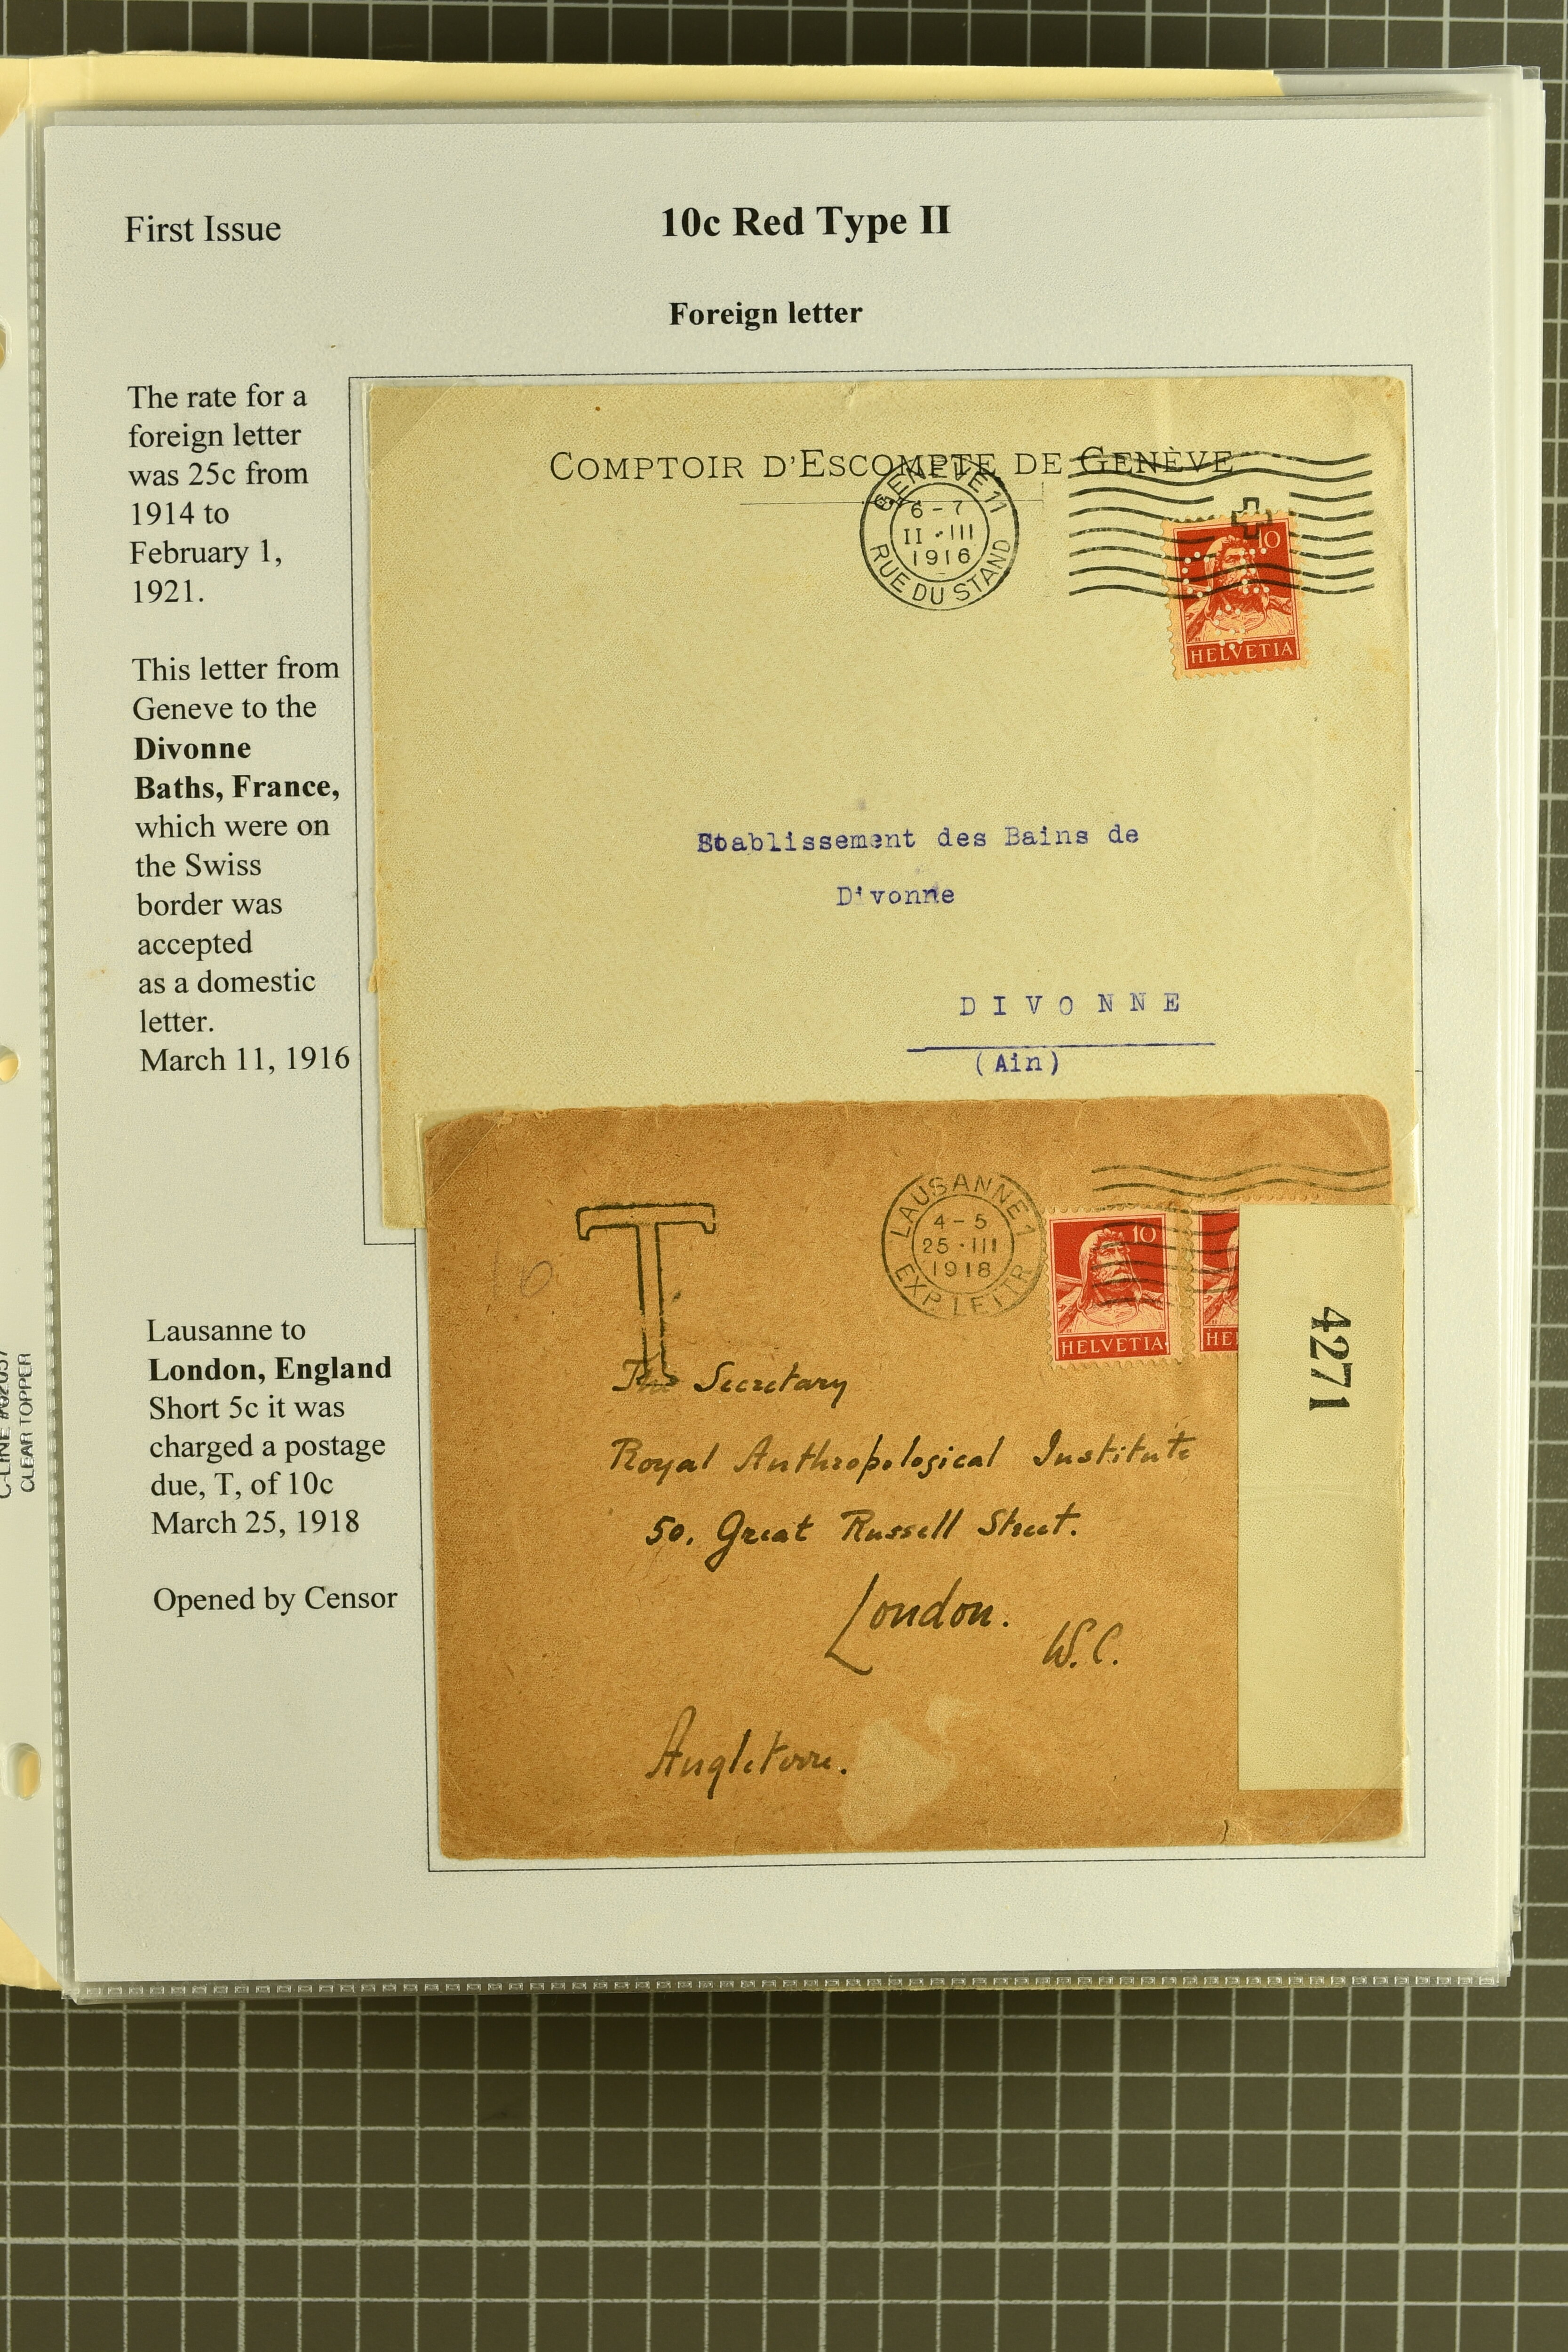 First Issue
10c Red Type II
Foreign letter
The rate for a
foreign letter
was 25c from
1914 to
February 1,
1921.
This letter from
Geneve to the
Divonne
Baths, France,
which were on
the Swiss
border was
accepted
as a domestic
letter.
March 11, 1916
COMPTOIR D'ESCOMPTE DE GENÈVE
GENÈVE 11
6-7
II·III
1916
RUE DU STAND
10
HELVETIA
Etablissement des Bains de
Divonne
DIVONNE
(Ain)
Lausanne to
London, England
Short 5c it was
charged a postage
due, T, of 10c
March 25, 1918
Opened by Censor
T
LAUSANNE 1
4-5
25·III
1918
EXP. LETTR
10
HELVETIA
HE
4271
The Secretary
Royal Anthropological Institute
50. Great Russell Street.
London.
W.C.
Angleterre.
CLEAR TOPPER